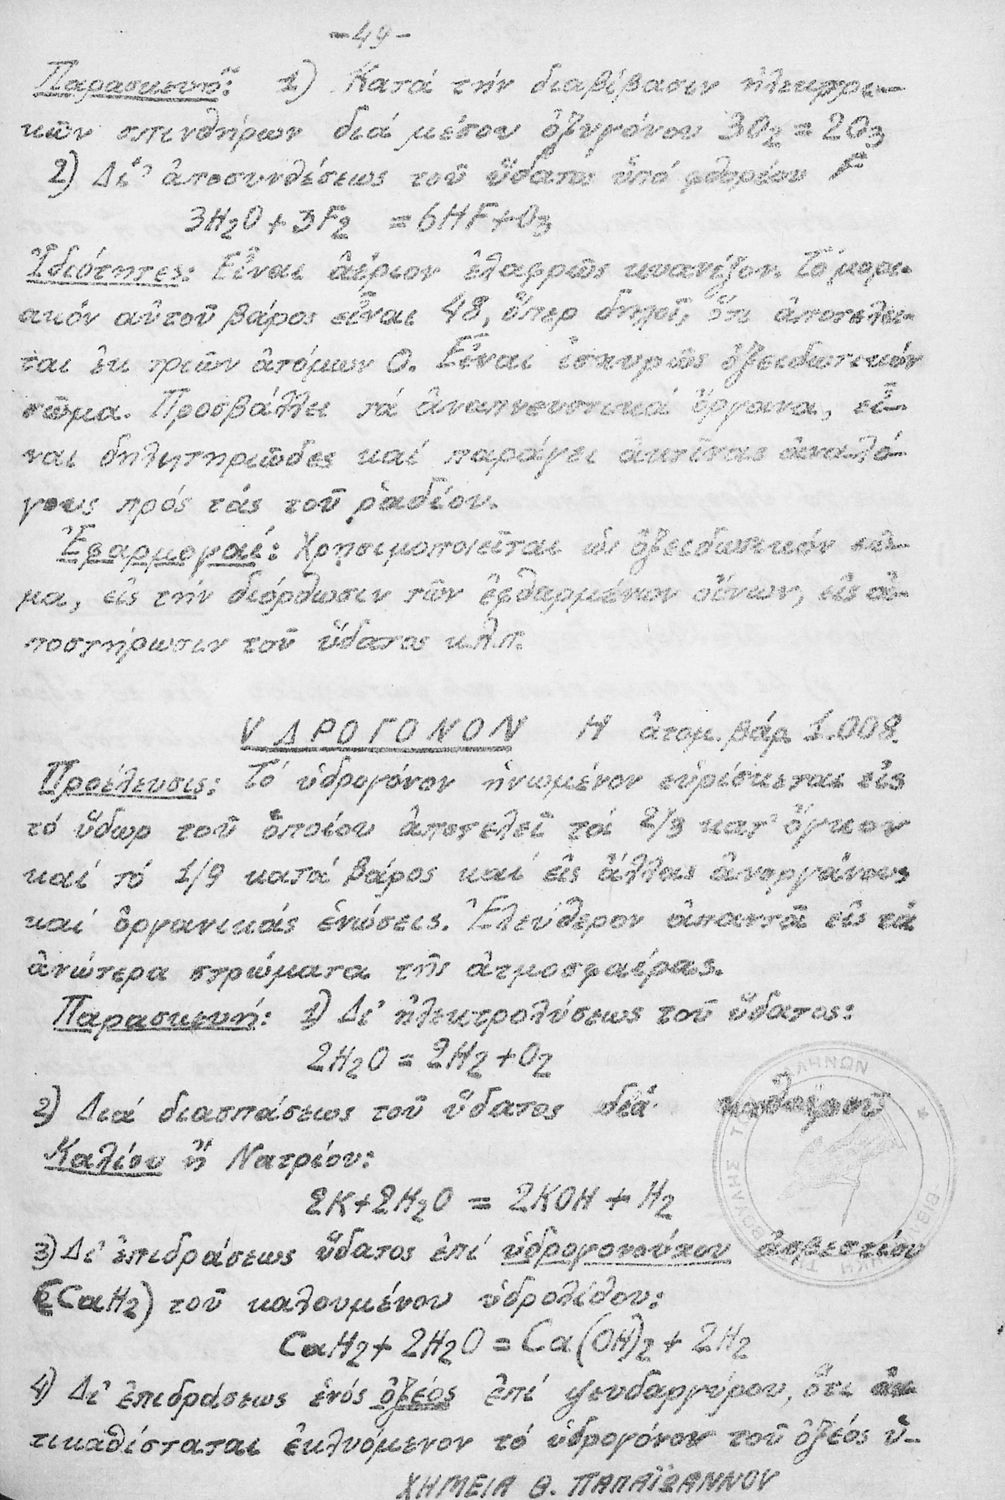 -49-
Παρασκευή: 1) Κατά τήν διαβίβασιν ἠλεκτρι-
κῶν σπινθήρων διά μέσου ὀξυγόνου 3O₂ = 2O₃
2) Δι' ἀποσυνθέσεως τοῦ ὕδατος ὑπό φθορίου F
3H₂O + 3F₂ = 6HF + O₃
Ἰδιότητες: Εἶναι ἀέριον ἐλαφρῶς κυανίζον. Τό μορι-
ακόν αὐτοῦ βάρος εἶναι 48, ὅπερ δηλοῖ, ὅτι ἀποτελεῖ-
ται ἐκ τριῶν ἀτόμων O. Εἶναι ἰσχυρῶς ὀξειδωτικόν
σῶμα. Προσβάλλει τά ἀναπνευστικά ὄργανα, εἶ-
ναι δηλητηριῶδες καί παράγει ἀκτῖνας ἀναλό-
γους πρός τάς τοῦ ραδίου.
Ἐφαρμογαί: Χρησιμοποιεῖται ὡς ὀξειδωτικόν σῶ-
μα, εἰς τήν διόρθωσιν τῶν ἐφθαρμένων οἴνων, εἰς ἀ-
ποστείρωσιν τοῦ ὕδατος κ.λ.π.
ΥΔΡΟΓΟΝΟΝ H ἀτομ. βάρ. 1.008
Προέλευσις: Τό ὑδρογόνον ἡνωμένον εὑρίσκεται εἰς
τό ὕδωρ τοῦ ὁποίου ἀποτελεῖ τά 2/3 κατ' ὄγκον
καί τό 1/9 κατά βάρος καί εἰς ἄλλας ἀνοργάνους
καί ὀργανικάς ἑνώσεις. Ἐλεύθερον ἀπαντᾶ εἰς τά
ἀνώτερα στρώματα τῆς ἀτμοσφαίρας.
Παρασκευή: 1) Δι' ἠλεκτρολύσεως τοῦ ὕδατος:
2H₂O = 2H₂ + O₂
2) Διά διασπάσεως τοῦ ὕδατος διά
Καλίου ἤ Νατρίου:
2K + 2H₂O = 2KOH + H₂
3) Δι' ἐπιδράσεως ὕδατος ἐπί ὑδρογονούχου ἀσβεστίου
(CaH₂) τοῦ καλουμένου ὑδρολίθου:
CaH₂ + 2H₂O = Ca(OH)₂ + 2H₂
4) Δι' ἐπιδράσεως ἑνός ὀξέος ἐπί ψευδαργύρου, ὅτι ἀν-
τικαθίσταται ἐκλυόμενον τό ὑδρογόνον τοῦ ὀξέος ὑ-
ΧΗΜΕΙΑ Θ. ΠΑΠΑΪΩΑΝΝΟΥ